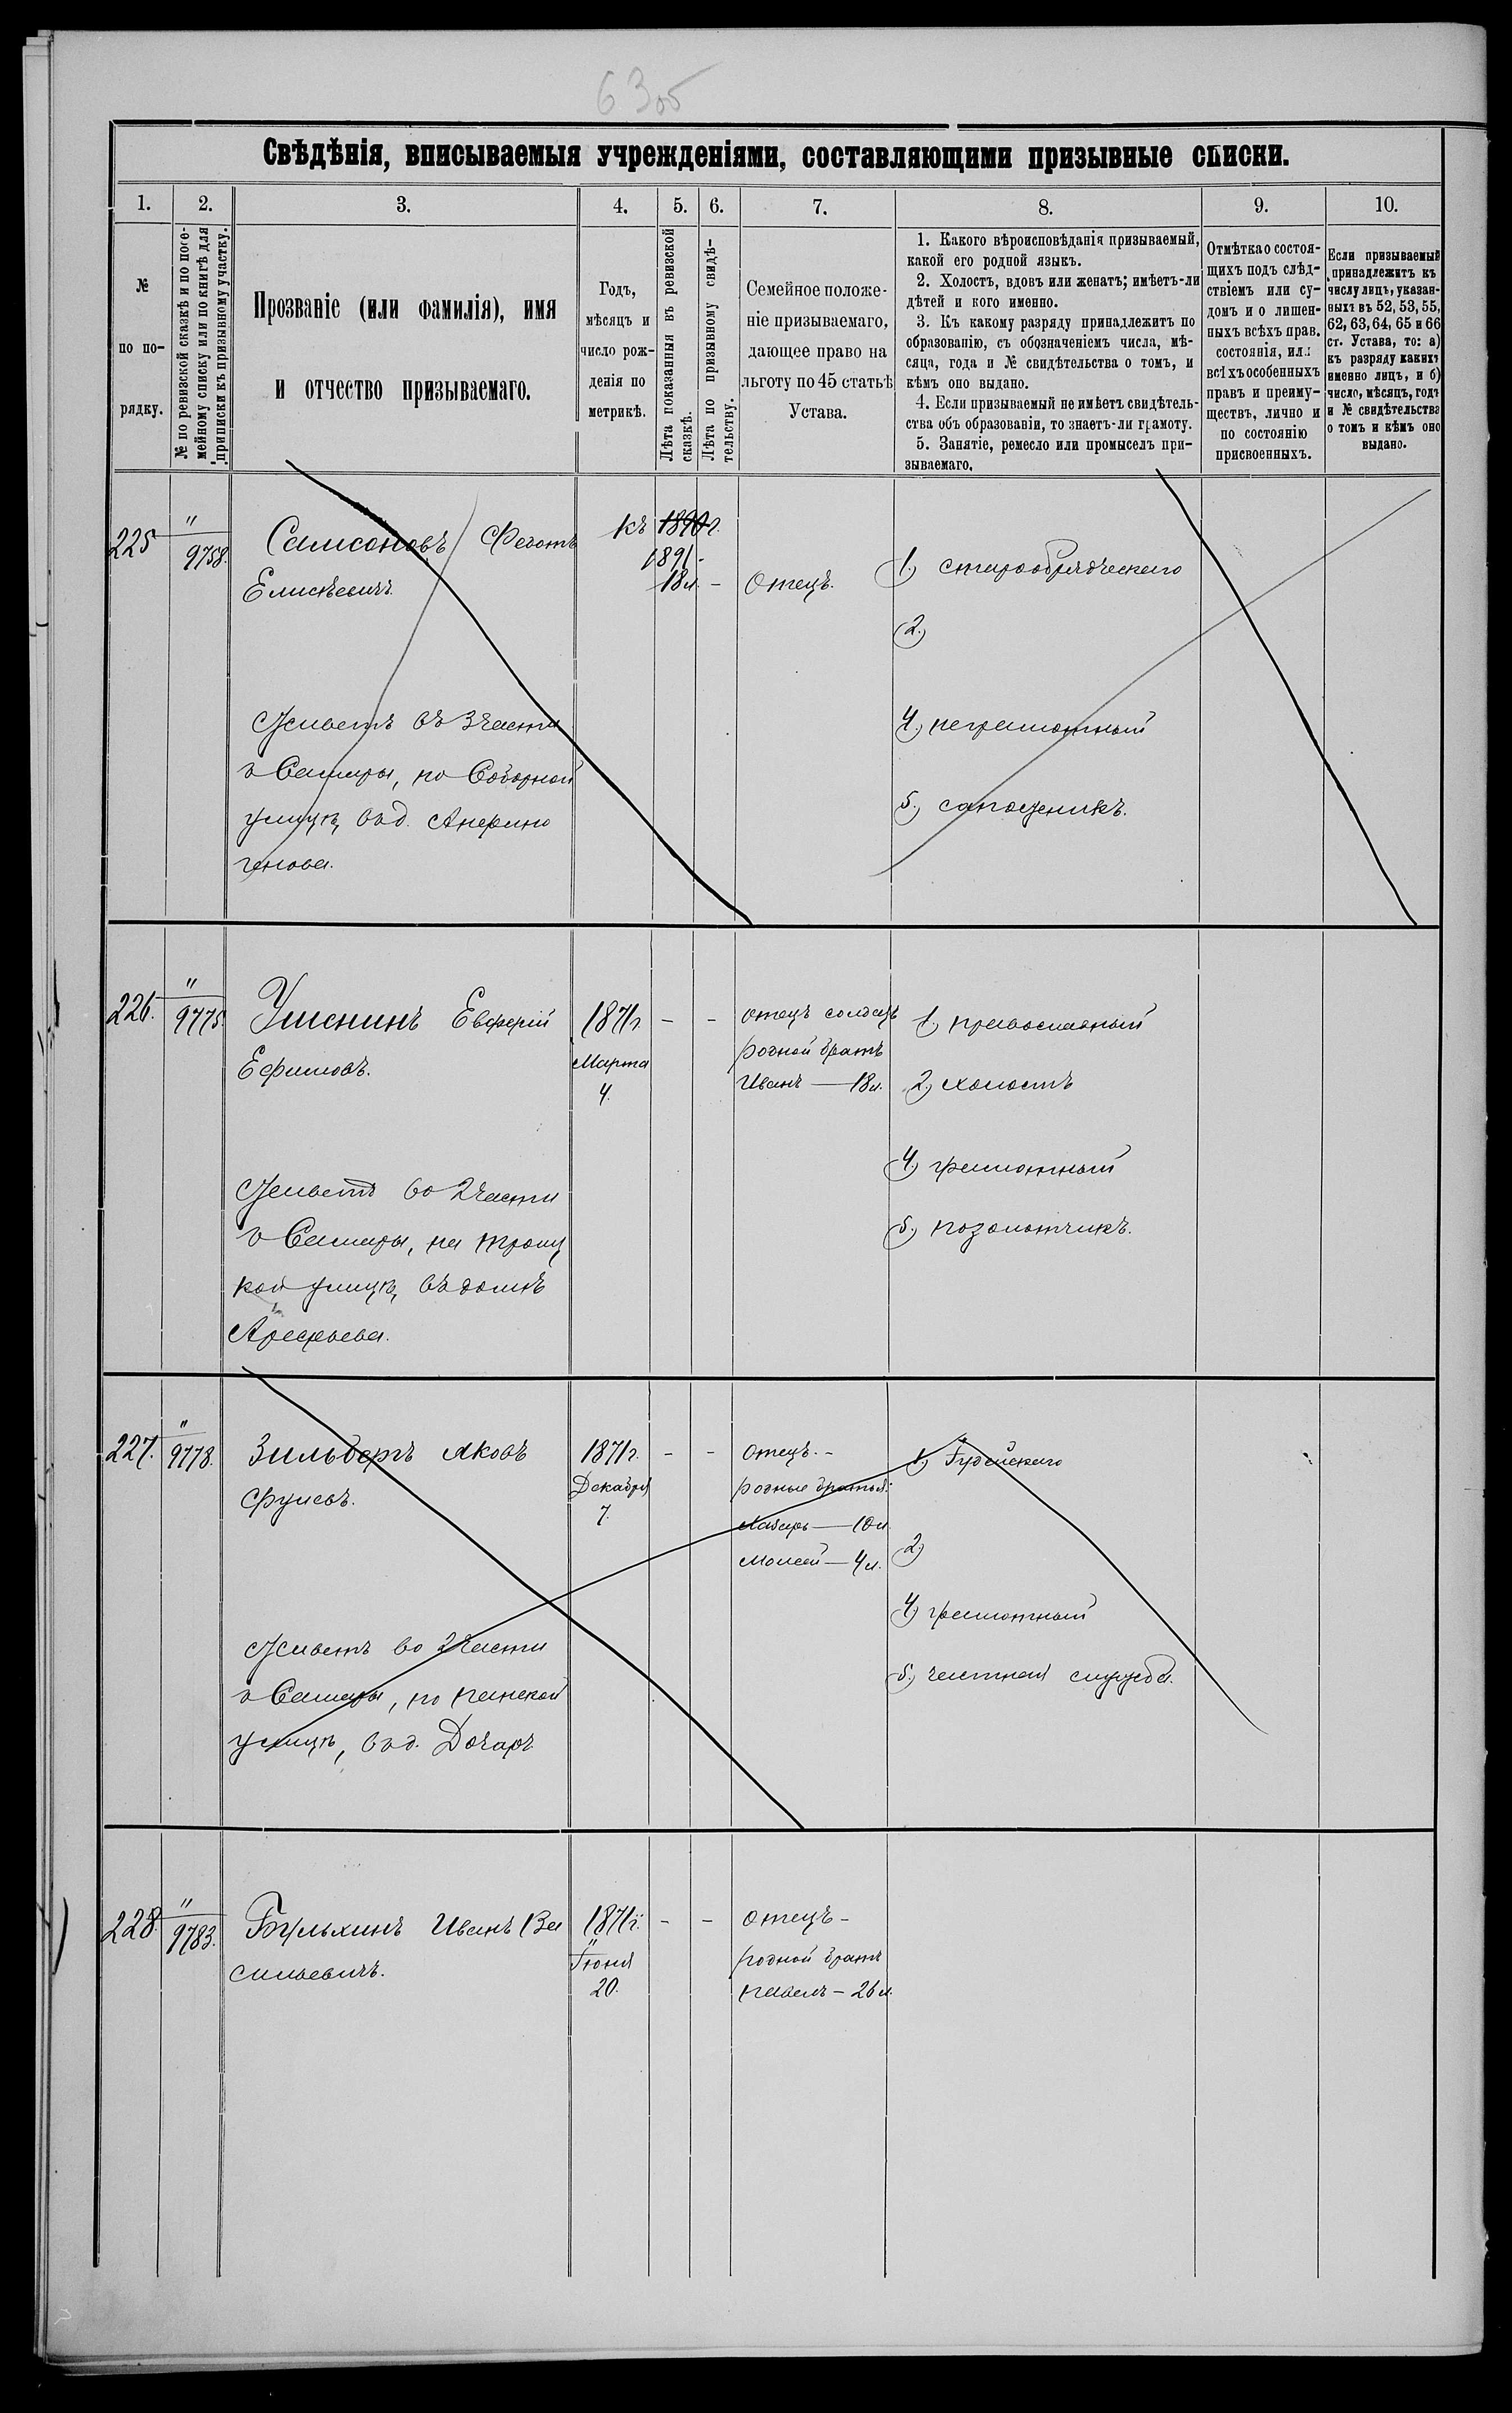 63об
Свѣдѣнія, вписываемыя учрежденіями, составляющими призывные списки.
1. 2. 3. 4. 5. 6. 7. 8. 9. 10.
№
по по-
рядку.
№ по ревизской сказкѣ и по посе-
мейному списку или по книгѣ для
приписки къ призывному участку.
Прозваніе (или фамилія), имя
и отчество призываемаго.
Годъ,
мѣсяцъ и
число рож-
денія по
метрикѣ.
Лѣта показанныя въ ревизской
сказкѣ.
Лѣта по призывному свидѣ-
тельству.
Семейное положе-
ніе призываемаго,
дающее право на
льготу по 45 статьѣ
Устава.
1. Какого вѣроисповѣданія призываемый,
какой его родной языкъ.
2. Холостъ, вдовъ или женатъ; имѣетъ-ли
дѣтей и кого именно.
3. Къ какому разряду принадлежитъ по
образованію, съ обозначеніемъ числа, мѣ-
сяца, года и № свидѣтельства о томъ, и
кѣмъ оно выдано.
4. Если призываемый не имѣетъ свидѣтель-
ства объ образованіи, то знаетъ-ли грамоту.
5. Занятіе, ремесло или промыселъ при-
зываемаго.
Отмѣтка о состоя-
щихъ подъ слѣд-
ствіемъ или су-
домъ и о лишен-
ныхъ всѣхъ прав.
состоянія, или
всѣхъ особенныхъ
правъ и преиму-
ществъ, лично и
по состоянію
присвоенныхъ.
Если призываемый
принадлежитъ къ
числу лицъ, указан-
ныхъ въ 52, 53, 55,
62, 63, 64, 65 и 66
ст. Устава, то: а)
къ разряду какихъ
именно лицъ, и б)
число, мѣсяцъ, годъ
и № свидѣтельства
о томъ и кѣмъ оно
выдано.
225 " 9758.
Самсоновъ Федотъ
Елисѣевичъ.
Живетъ въ 3 части
г Самары, по Соборной
улицѣ, въ д.
къ 1890 г.
1891 -
18 л. -
Отецъ.
1) старообрядческаго
2)
4) неграмотный
5) сапожникъ.
226. " 9775.
Евферій
Ефимовъ.
Живетъ во 2 части
г Самары, на Троиц
кой улицѣ, въ домѣ
Арефьева.
1871 г
Марта
4.
- -
отецъ солдатъ
родной братъ
Иванъ — 18 л.
1) православный
2) холостъ
4) грамотный
5) позолотчикъ.
227. " 9778.
Зильбергъ Яковъ
Живетъ во 2 части
г Самары, по Панской
улицѣ, въ д.
1871 г.
Декабря
7.
- -
отецъ. -
родные братья:
— 10 л
Моисей — 4 л.
1) Іудейскаго
2)
4) грамотный
5) частная служба.
228. " 9783.
Иванъ Ва
сильевичъ.
1871 г.
Іюня
20.
- -
отецъ -
родной братъ
Павелъ - 26 л.